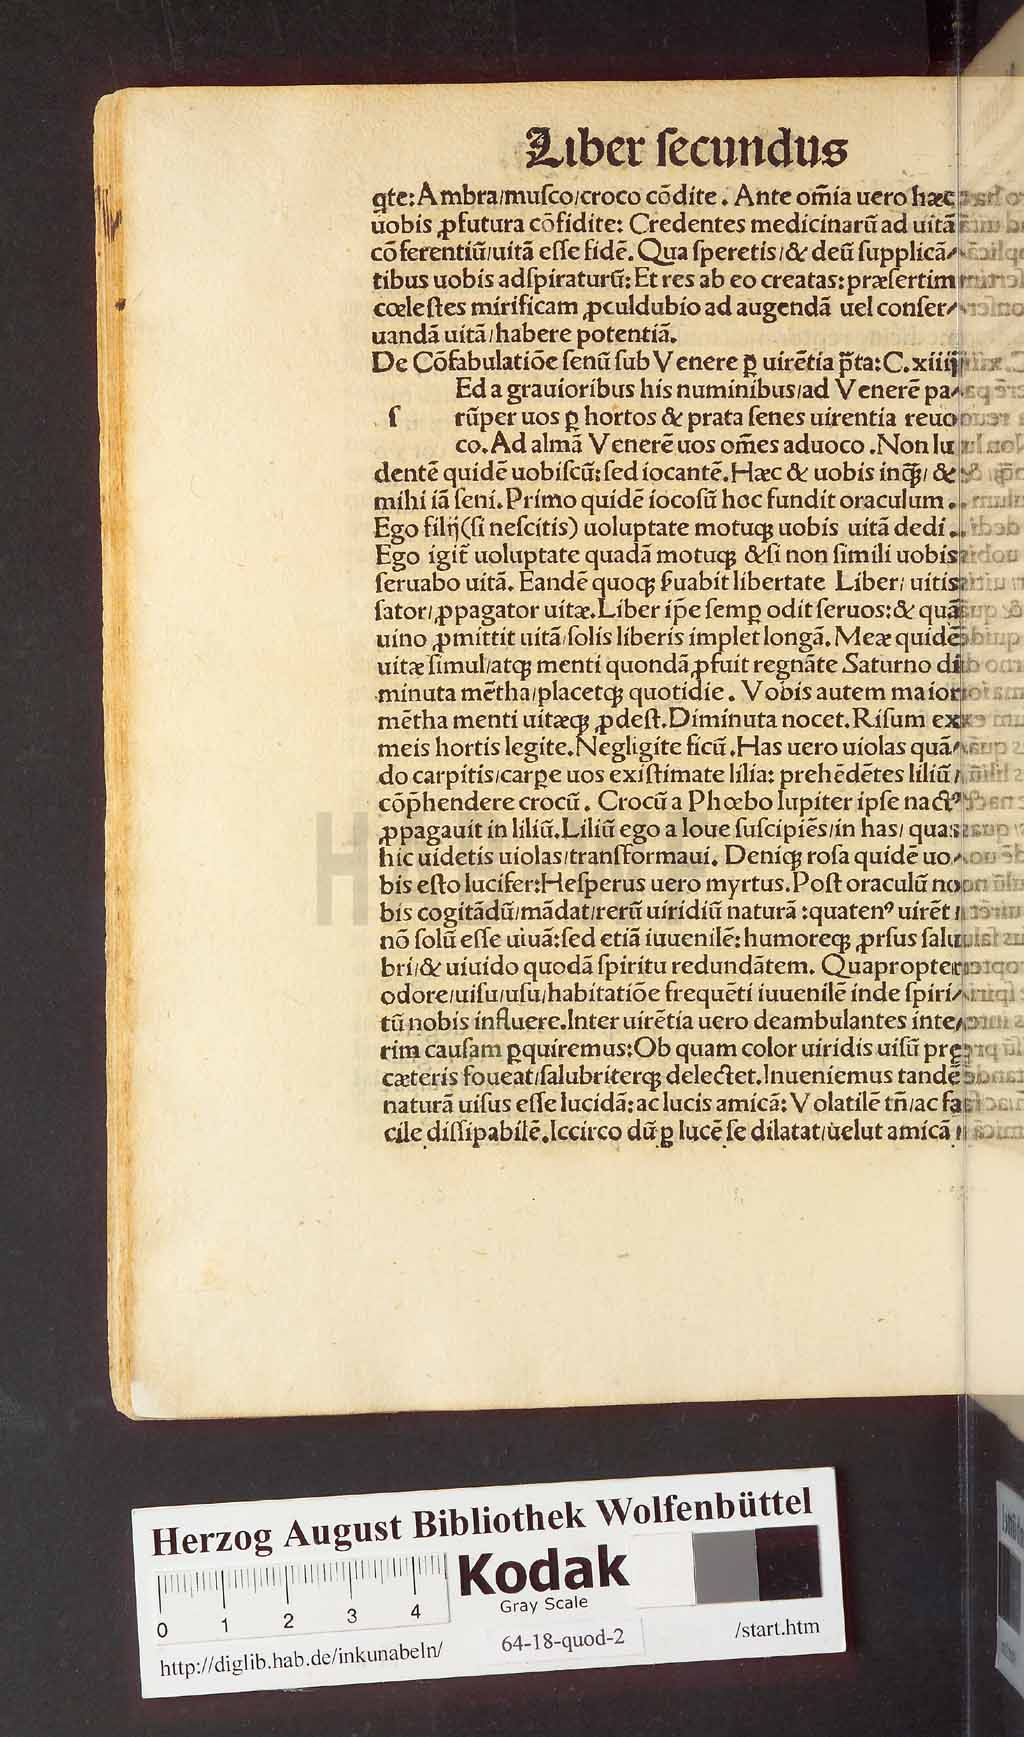 Liber ſecundus
qte: Ambra/muſco/croco cōdite. Ante om̄ia uero hæc
uobis ꝓfutura cōfidite: Credentes medicinarū ad uitā
cōferentiū/uitā eſſe fidē. Qua ſperetis/& deū ſupplicā⸗
tibus uobis adſpiraturū: Et res ab eo creatas: præſertim
cœleſtes mirificam ꝓculdubio ad augendā uel conſer⸗
uandā uitā/habere potentiā.
De Cōfabulatiōe ſenū ſub Venere ꝑ uirētia p̄ta: C. xiiij
Ed a grauioribus his numinibus/ad Venerē pa⸗
ſ rūper uos ꝑ hortos & prata ſenes uirentia reuo
co. Ad almā Venerē uos om̄es aduoco. Non lu
dentē quidē uobiſcū: ſed iocantē. Hæc & uobis inq̄ꝫ/ &
mihi iā ſeni. Primo quidē iocoſū hoc fundit oraculum.
Ego filij (ſi neſcitis) uoluptate motuqꝫ uobis uitā dedi.
Ego igit̄ uoluptate quadā motuqꝫ &ſi non ſimili uobis
ſeruabo uitā. Eandē quoqꝫ ſ̄uabit libertate Liber/ uitis
ſator/ꝓpagator uitæ. Liber ip̄e ſemꝑ odit ſeruos: & quā
uino ꝓmittit uitā/ſolis liberis implet longā. Meæ quidē
uitæ ſimul/atqꝫ menti quondā ꝓfuit regnāte Saturno di
minuta mētha/placetqꝫ quotidie. Vobis autem maior
mētha menti uitæqꝫ ꝓdeſt. Diminuta nocet. Riſum ex
meis hortis legite. Negligite ficū. Has uero uiolas quā⸗
do carpitis/carpe uos exiſtimate lilia: prehēdētes liliū/
cōp̄hendere crocū. Crocū a Phœbo Iupiter ipſe nactꝰ
ꝓpagauit in liliū. Liliū ego a Ioue ſuſcipiēs/in has/ quas
hic uidetis uiolas/tranſformaui. Deniqꝫ roſa quidē uo⸗
bis eſto lucifer: Heſperus uero myrtus. Poſt oraculū no
bis cogitādū/mādat/rerū uiridiū naturā: quatenꝰ uirēt
nō ſolū eſſe uiuā: ſed etiā iuuenilē: humoreqꝫ ꝓrſus ſalu
bri/& uiuido quodā ſpiritu redundātem. Quapropter
odore/uiſu/uſu/habitatiōe frequēti iuuenilē inde ſpiri⸗
tū nobis influere. Inter uirētia uero deambulantes inte⸗
rim cauſam ꝑquiremus: Ob quam color uiridis uiſū pre
cæteris foueat/ſalubriterqꝫ delectet. Inueniemus tandē
naturā uiſus eſſe lucidā: ac lucis amicā: Volatilē tn̄/ac fa
cile diſſipabilē. Iccirco dū ꝑ lucē ſe dilatat/uelut amicā
Herzog August Bibliothek Wolfenbüttel
Kodak
Gray Scale
0 1 2 3 4
http://diglib.hab.de/inkunabeln/
64-18-quod-2
/start.htm